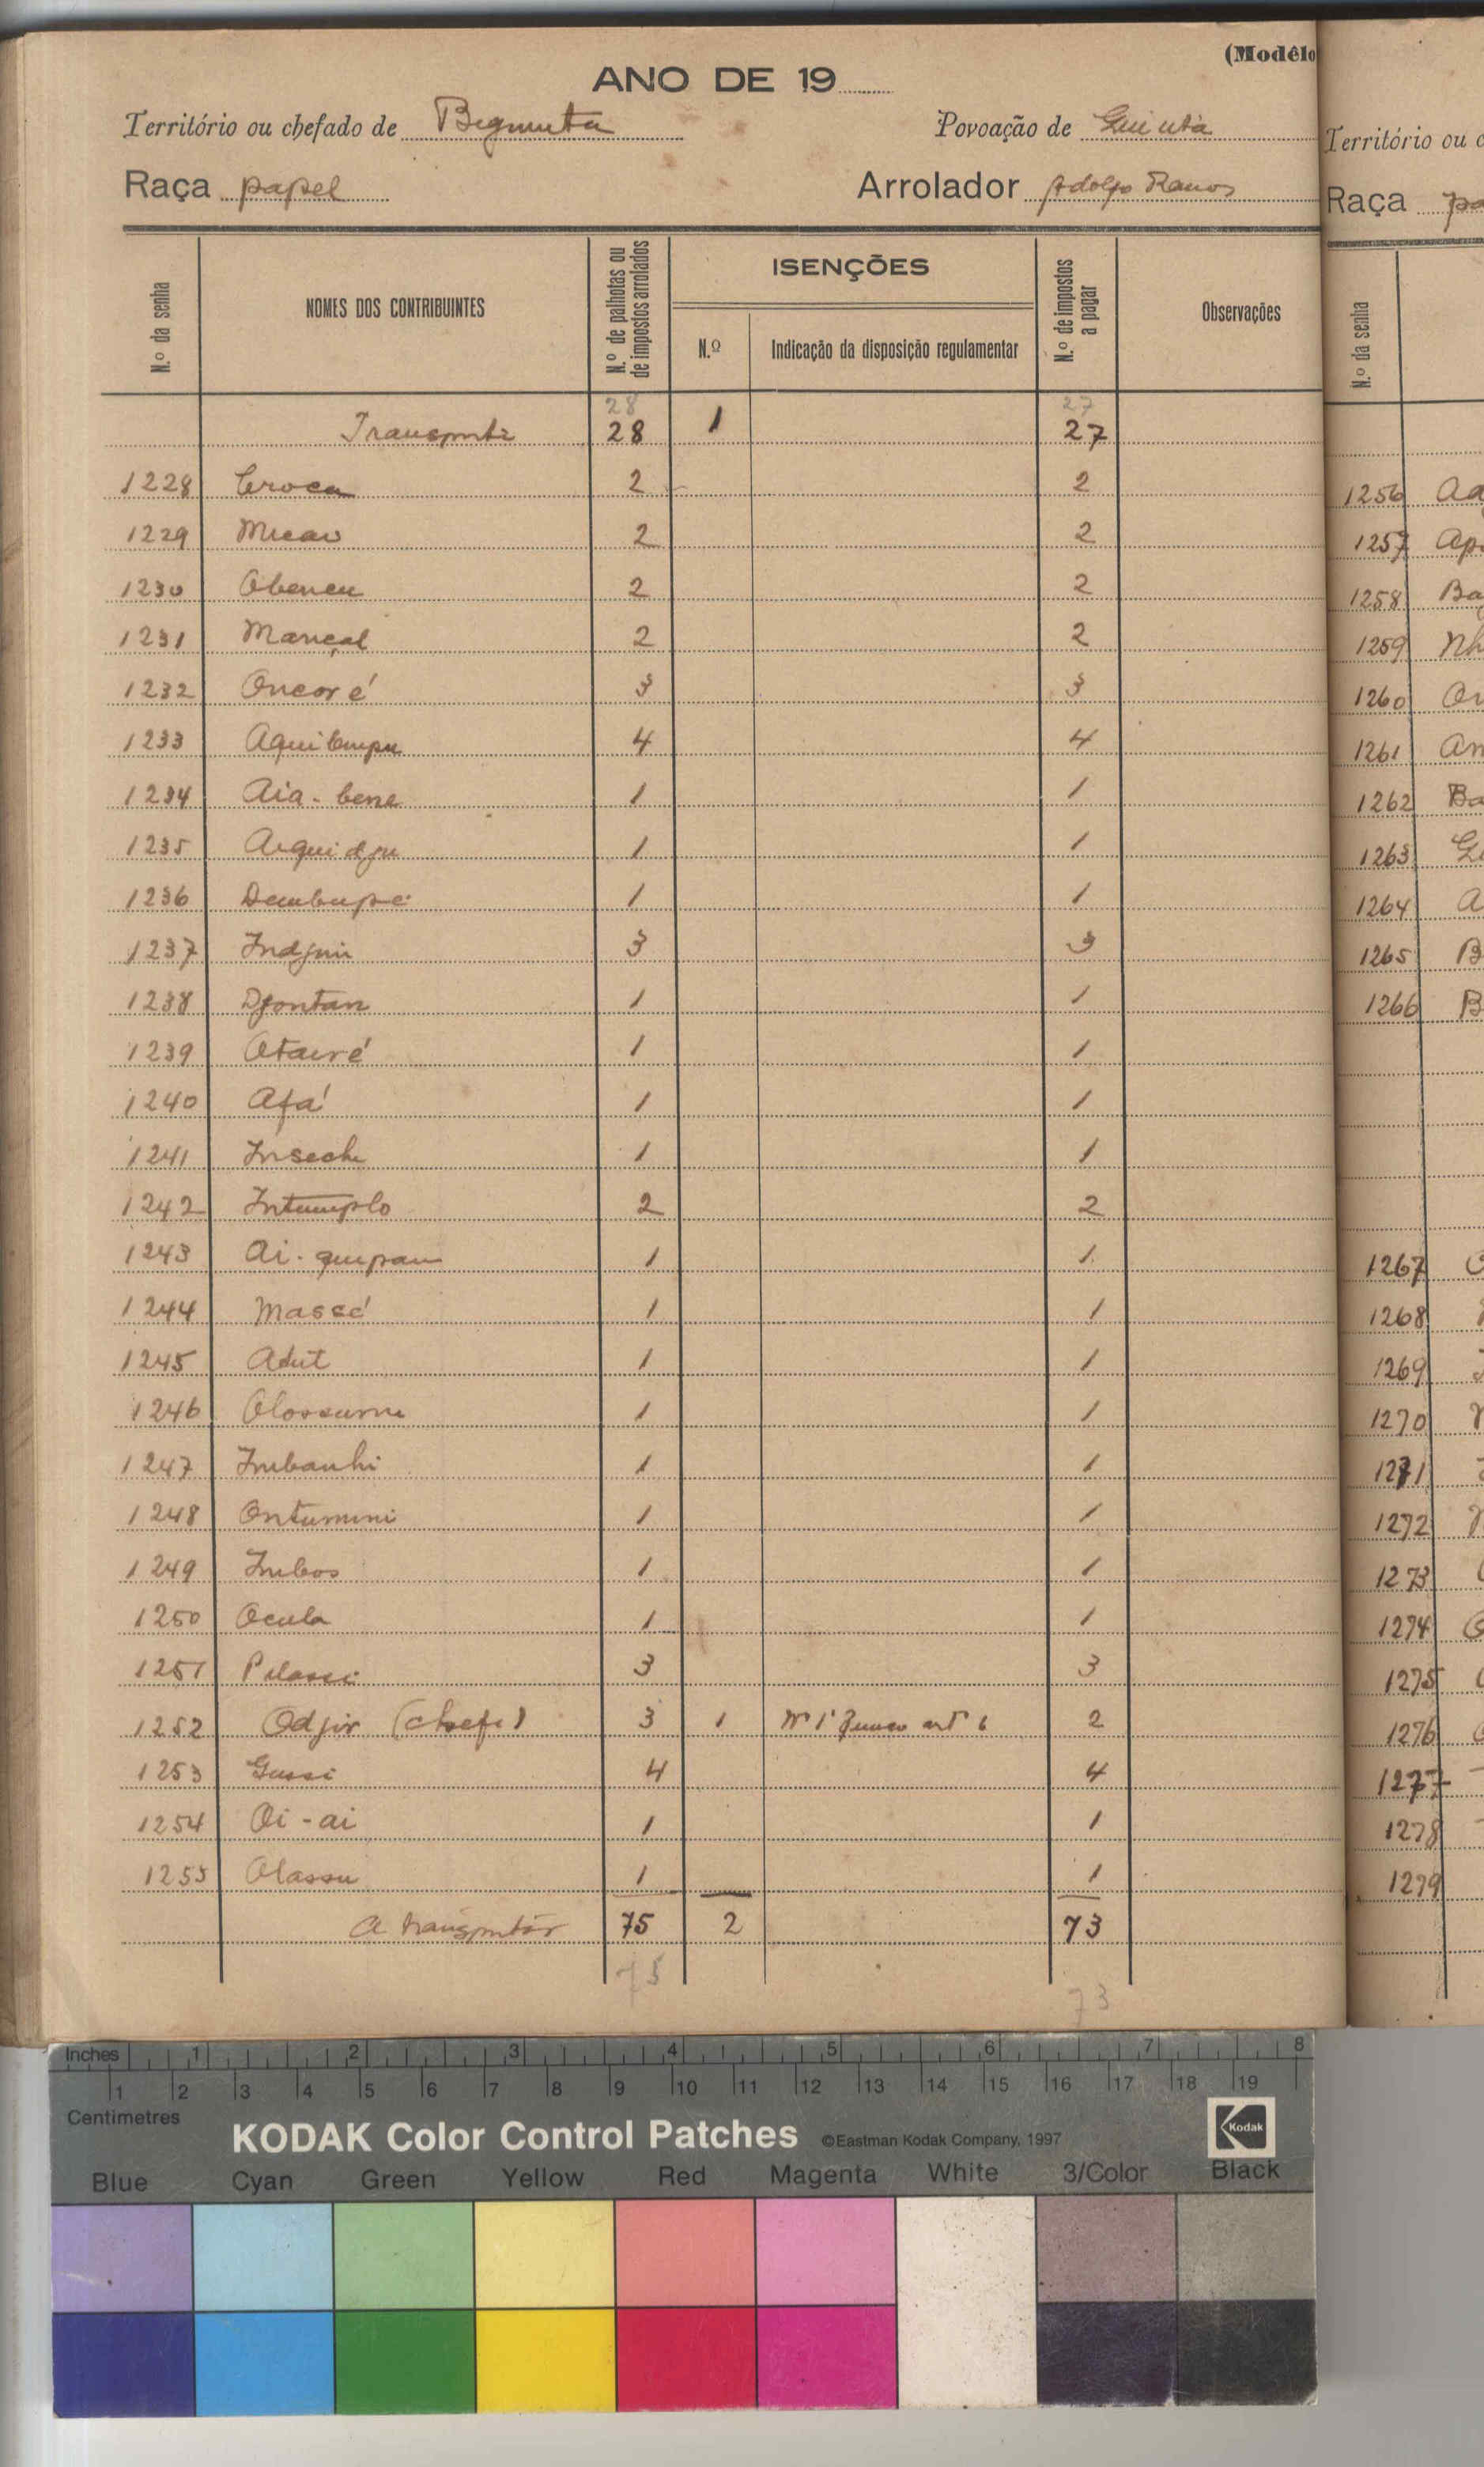 (Modêlo
ANO DE 19
Território ou chefado de Bigmuta Povoação de Quiutà
Raça papel Arrolador Adolfo Ramos
N.º da senha NOMES DOS CONTRIBUINTES N.º de palhotas ou de impostos arrolados ISENÇÕES N.º Indicação da disposição regulamentar N.º de impostos a pagar Observações
28 27
Transporte 28 1 27
1228 Croca 2 2
1229 Micau 2 2
1230 Obeneu 2 2
1231 Mançal 2 2
1232 Oncoré 3 3
1233 Aquilempu 4 4
1234 Aia-bene 1 1
1235 Aiquidju 1 1
1236 Dembupe 1 1
1237 Indjui 3 3
1238 Djontan 1 1
1239 Otairé 1 1
1240 Afá 1 1
1241 Insech 1 1
1242 Intumplo 2 2
1243 Ai-quipau 1 1
1244 Massé 1 1
1245 Adut 1 1
1246 Olossume 1 1
1247 Imbanhi 1 1
1248 Ontumini 1 1
1249 Imbos 1 1
1250 Ocula 1 1
1251 Pilassi 3 3
1252 Odjir (chefe) 3 1 Nº 1º art 6 2
1253 Gussi 4 4
1254 Oi-ai 1 1
1255 Olassu 1 1
A transportar 75 2 73
75 73
Território ou c
Raça pa
N.º da senha
1256 Aa
1257 Ap
1258 Ba
1259 Nh
1260 On
1261 An
1262 Ba
1263
1264 A
1265 B
1266 B
1267
1268
1269
1270
1271
1272
1273
1274
1275
1276
1277
1278
1279
Inches 1 2 3 4 5 6 7 8
1 2 3 4 5 6 7 8 9 10 11 12 13 14 15 16 17 18 19
Centimetres
KODAK Color Control Patches ©Eastman Kodak Company, 1997 Kodak
Blue Cyan Green Yellow Red Magenta White 3/Color Black